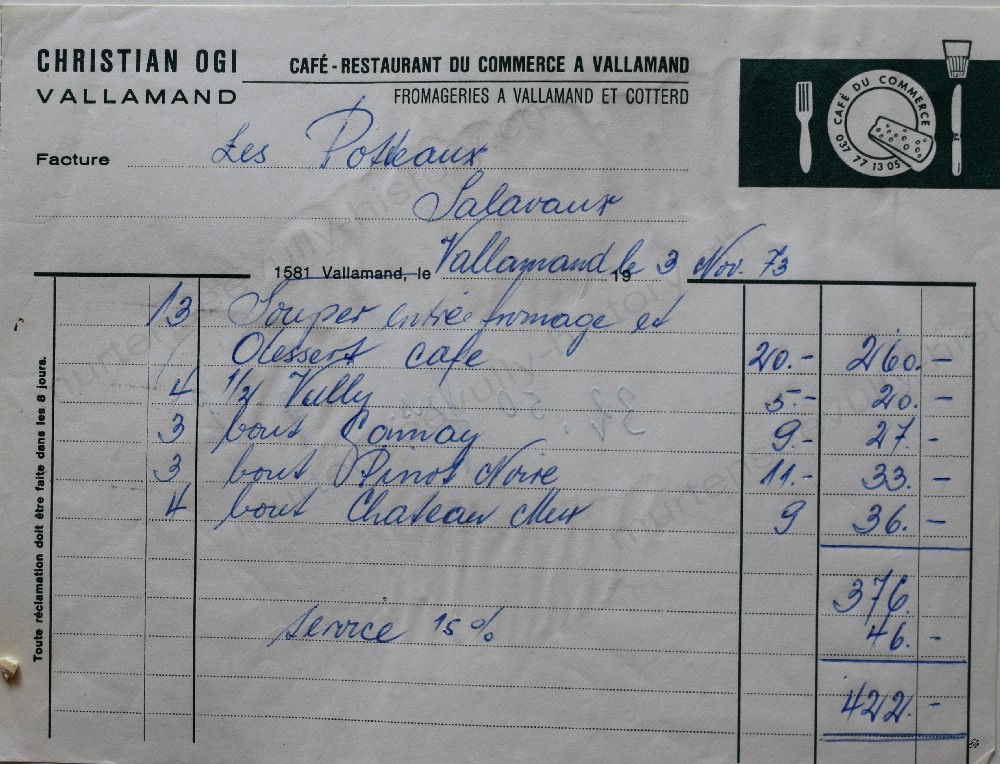 CHRISTIAN OGI
VALLAMAND
CAFÉ - RESTAURANT DU COMMERCE A VALLAMAND
FROMAGERIES A VALLAMAND ET COTTERD
CAFÉ DU COMMERCE
037 77 13 05
Facture Les Potteaux
Salavaux
1581 Vallamand, le Vallamand le 19 3 Nov. 73
13 Souper entrée fromage et
Dessert café 20.- 260.-
4 1/2 Vully 5.- 20.-
3 bout Gamay 9.- 27.-
3 bout Pinot Noire 11.- 33.-
4 bout Chateau Mur 9 36.-
376.
service 15% 46.-
422.-
Toute réclamation doit être faite dans les 8 jours.